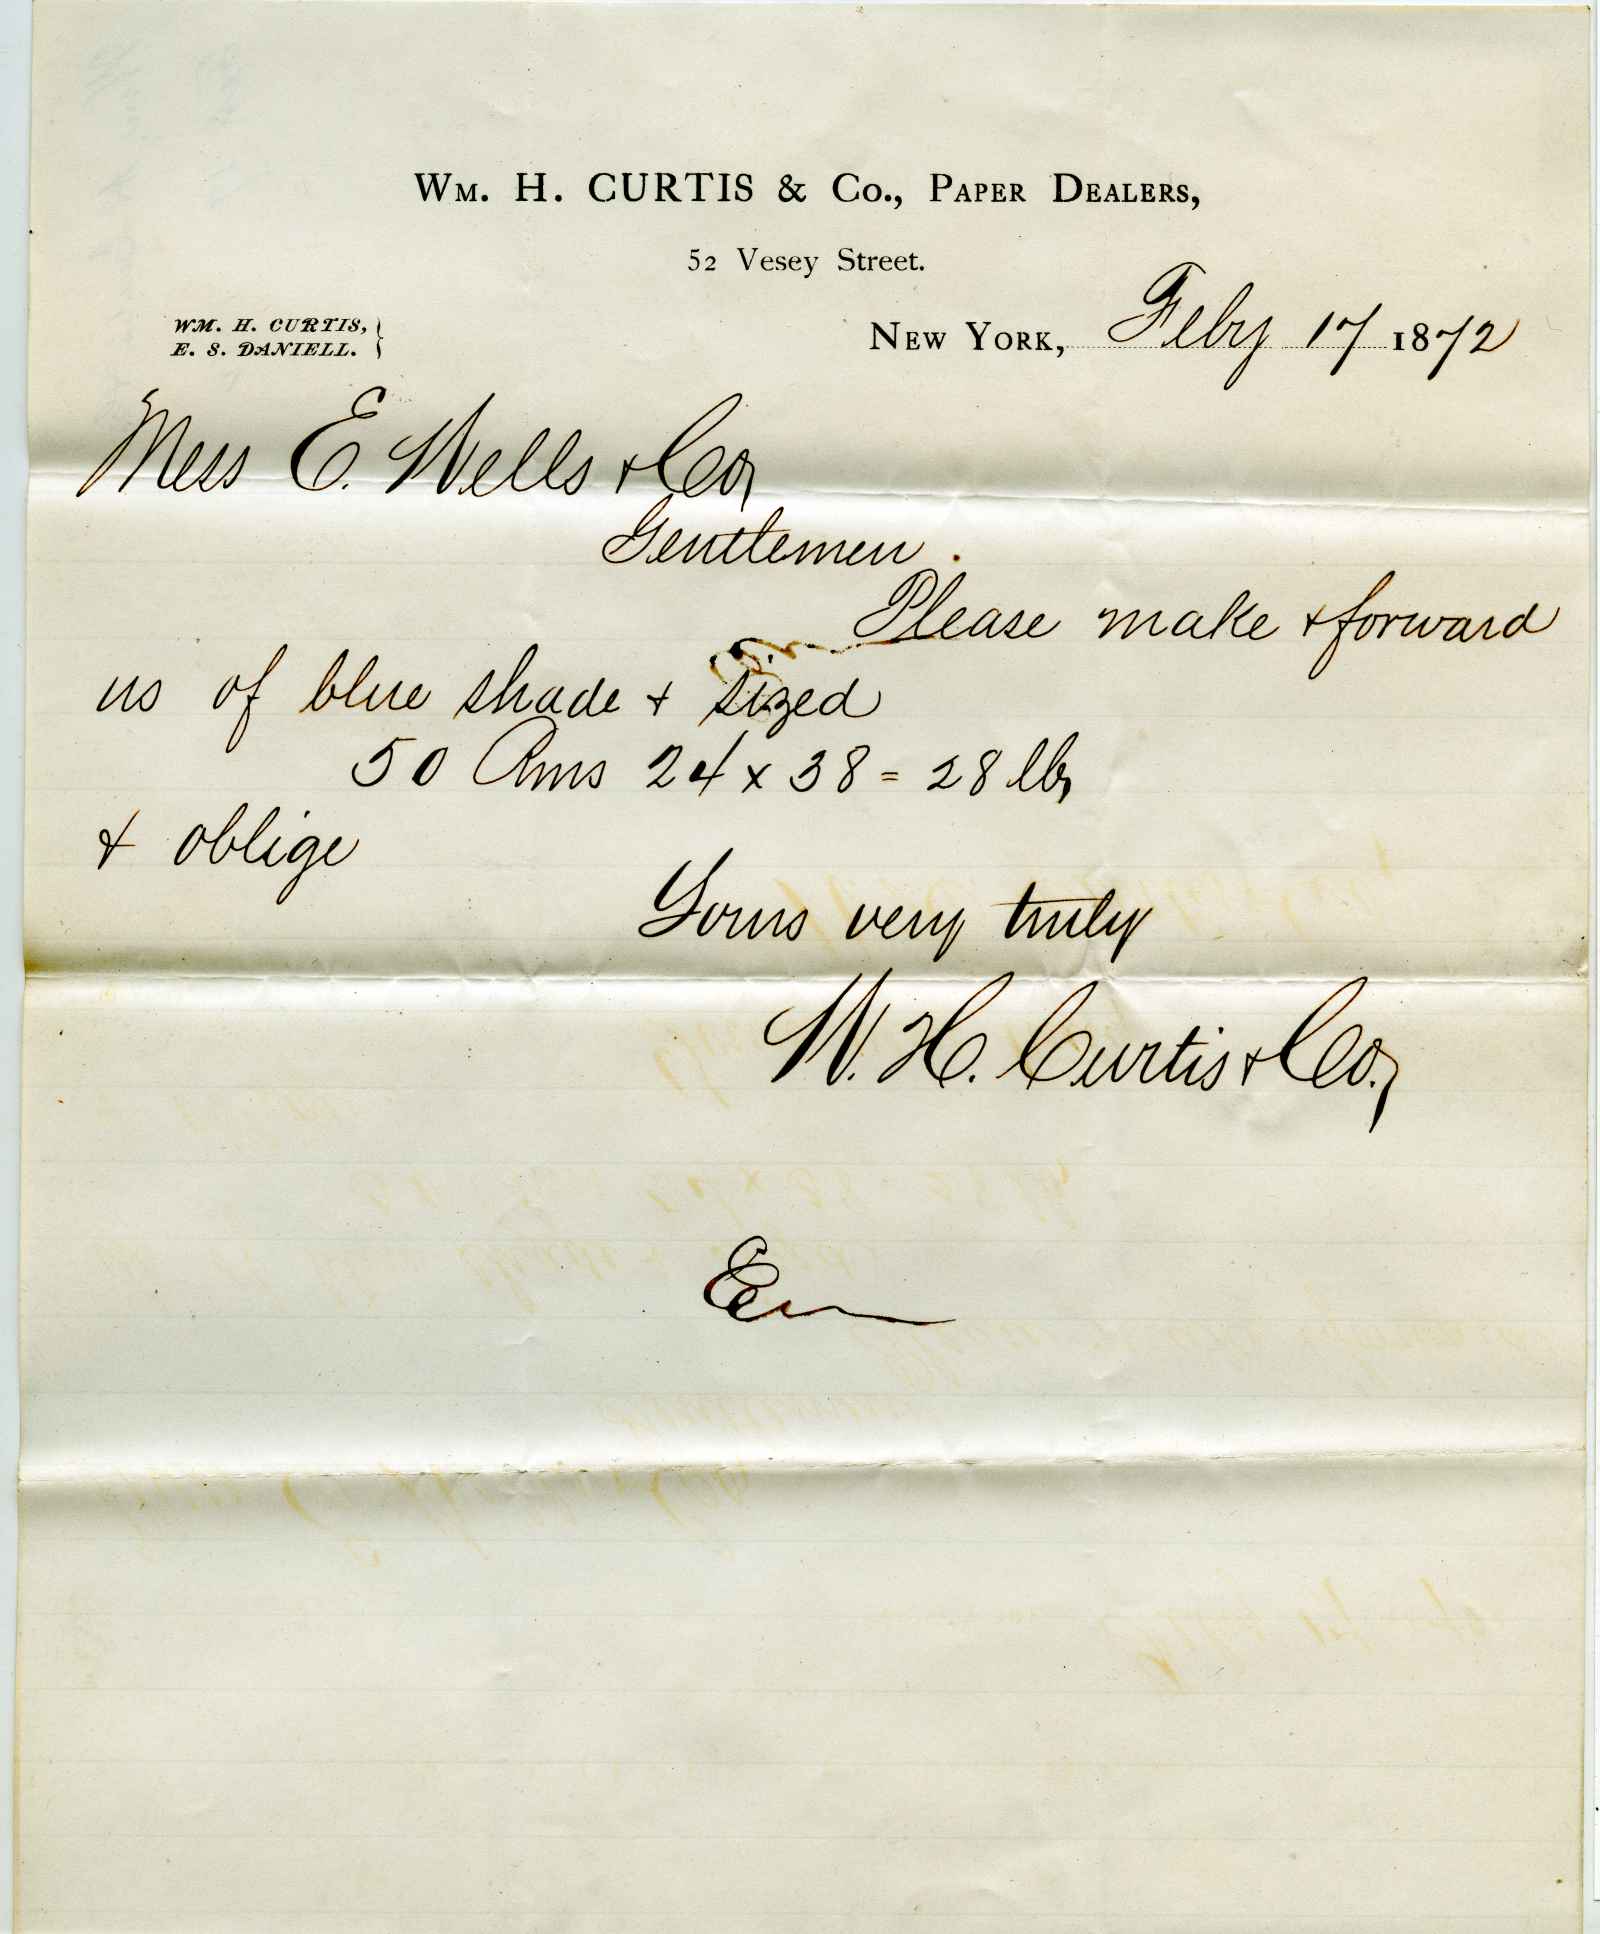 Wm. H. CURTIS & Co., Paper Dealers,
52 Vesey Street.
WM. H. CURTIS,
E. S. DANIELL.
New York, Feby 17 1872
Mess E. Wells & Co,
Gentlemen.
Please make & forward
us of blue shade & sized
50 Rms 24 x 38 = 28 lbs
& oblige
Yours very truly
W. H. Curtis & Co.,